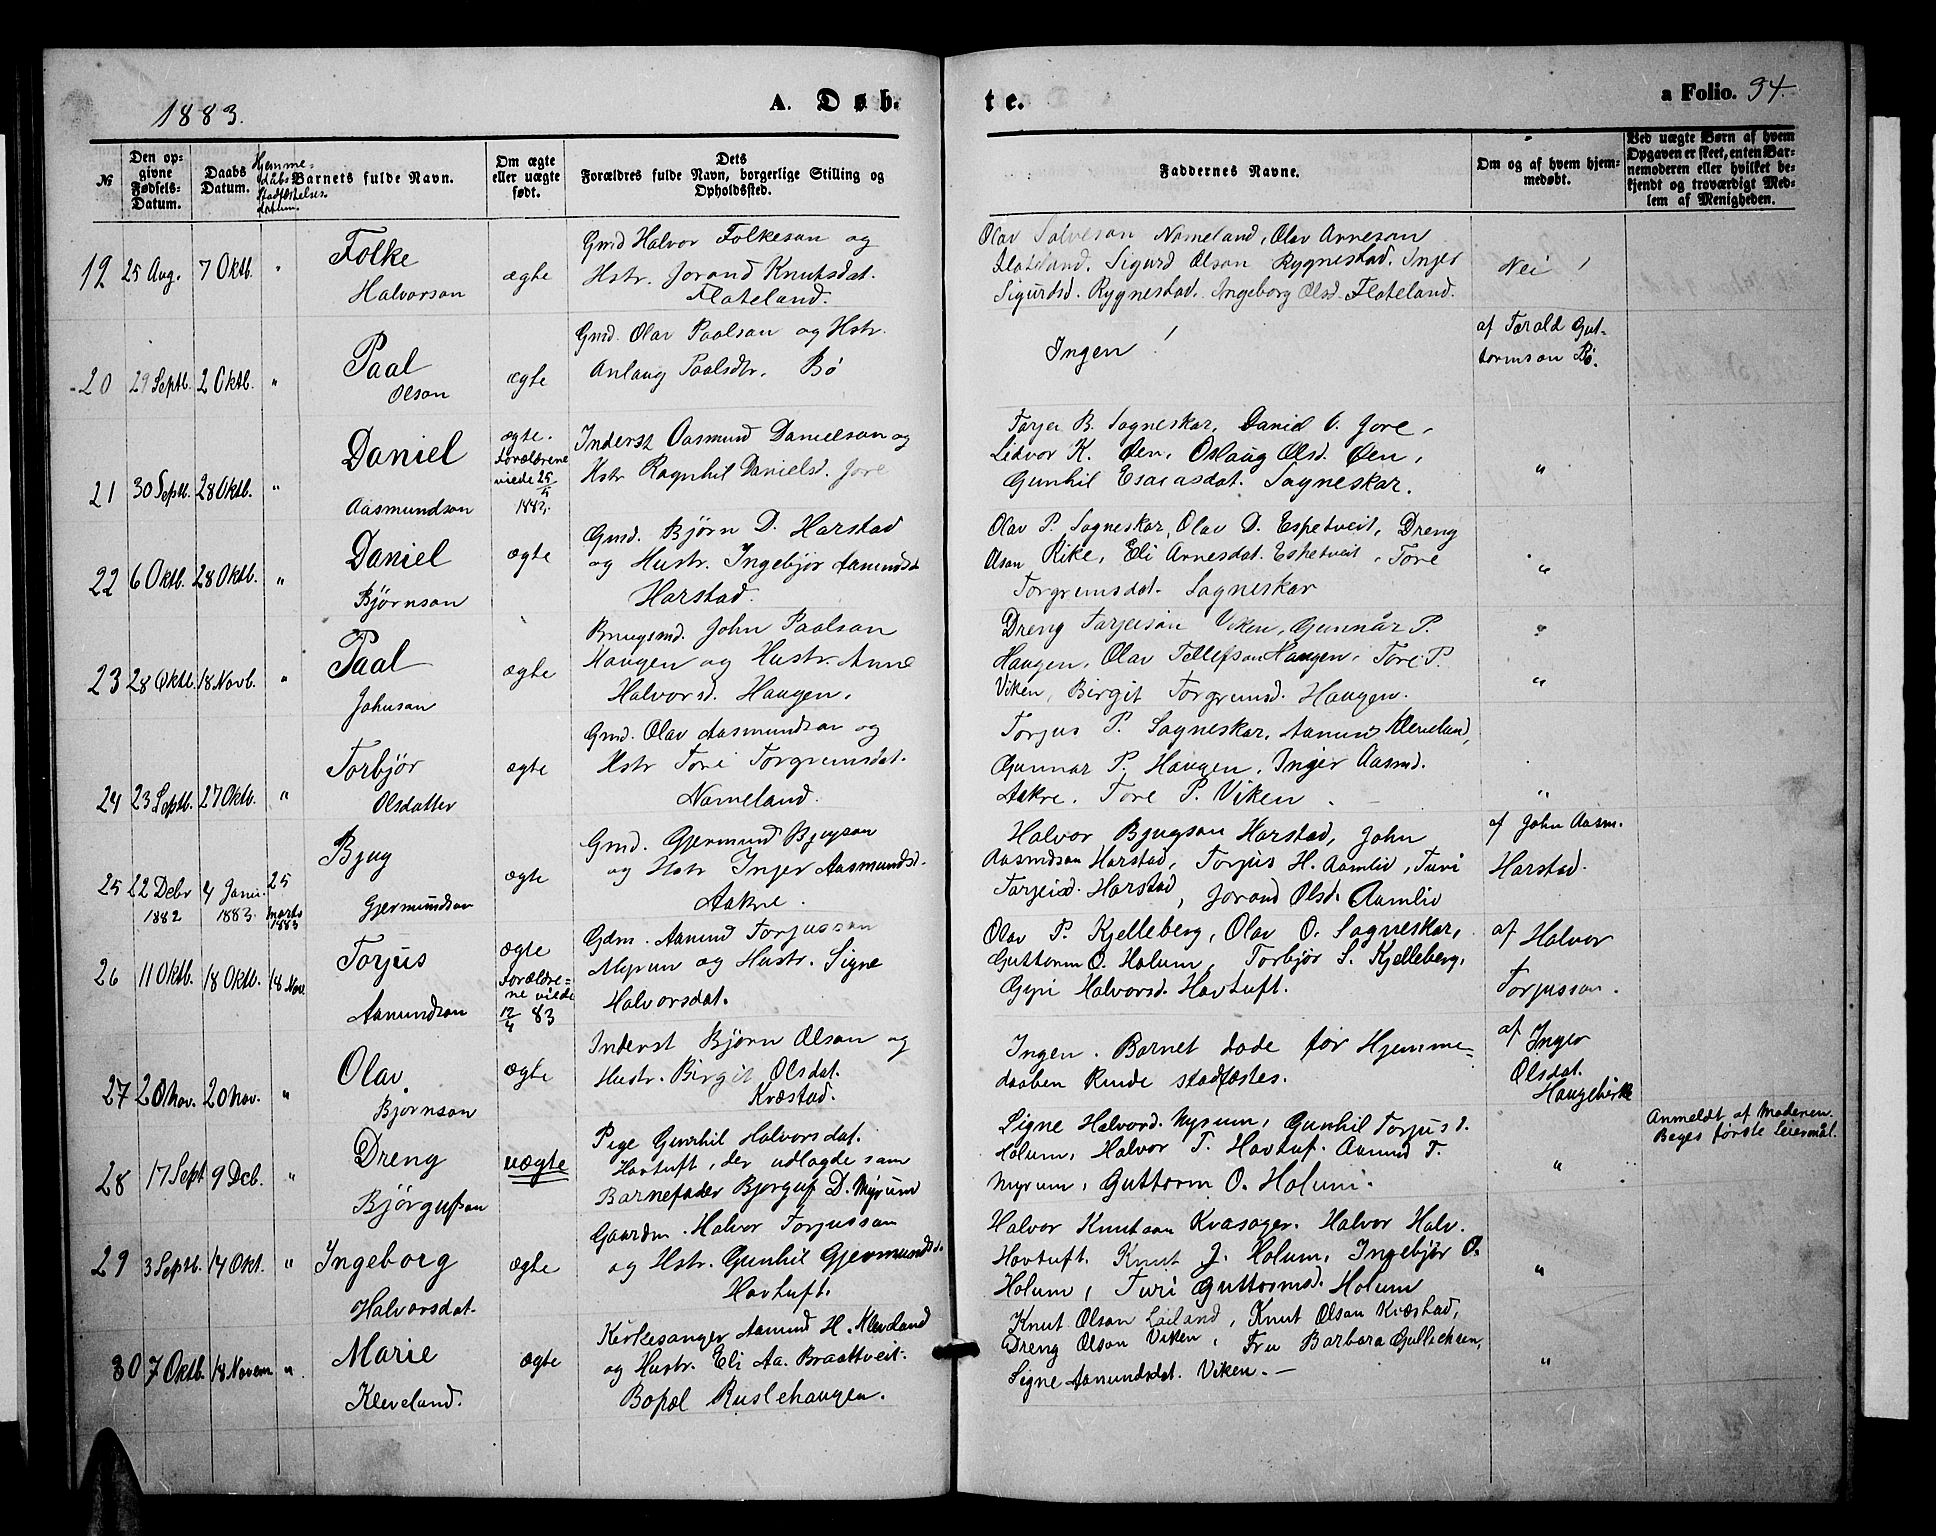 1883.
A. Døb-
te.
a Folio. 34.
№
Den opgivne Fødsels-Datum.
Daabs Datum.
Hjemmedaabs Stadfæstelses datum.
Barnets fulde Navn.
Om ægte eller uægte født.
Dets Forældres fulde Navn, borgerlige Stilling og Opholdssted.
Faddernes Navne.
Om og af hvem hjemmedøbt.
Ved uægte Børn af hvem Opgaven er skeet, enten Barnemoderen eller hvilket bekjendt og troværdigt Medlem af Menigheden.
19 25 Aug. 7 Oktb. "
Folke
Halvorson
ægte
Gmd Halvor Folkeson og
Hstr. Jorand Knutsdat.
Flateland.
Olav Salveson Nomeland, Olav Arneson
Flateland. Sigurd Olson Rygnestad. Inger
Sigurdsd. Rygnestad. Ingeborg Olsd. Flateland.
Nei !
20 29 Septb. 2 Oktb. "
Paal
Olson
ægte
Gmd. Olav Paalson og Hstr.
Anlaug Paalsdtr. Bø
Ingen !
af Tarald Gut-
tormson Bø.
21 30 Septb. 28 Oktb. "
Daniel
Aasmundson
ægte.
Forældrene
viede 25/5
1883.
Inderst Aasmund Danielson og
Hstr Ragnhil Danielsd. Jore
Torjer B. Sagneskar, Daniel O. Jore,
Lidvor K. Øen, Oslaug Olsd. Øen,
Gunhil Esaiasdat. Sagneskar.
"
22 6 Oktb. 28 Oktb. "
Daniel
Bjørnson
ægte
Gmd. Bjørn D. Harstad
og Hustr. Ingebjør Aamundsd
Harstad.
Olav P. Sagneskar, Olav D. Espetveit, Dreng
Olson Rike, Eli Arnesdat. Espetveit, Tore
Torgrimsdat. Sagneskar
"
23 28 Oktb. 18 Novb. "
Paal
Johnson
ægte
Brugsmd. John Paalson
Haugen og Hustr. Anne
Halvorsd. Haugen.
Dreng Torjeison Viken, Gunnar P.
Haugen, Olav Tellefson Haugen, Tore P.
Viken, Birgit Torgrimsd. Haugen.
"
24 23 Septb. 27 Oktb. "
Torbjør
Olsdatter
ægte
Gmd. Olav Aasmundson og
Hstr Tore Torgrimsdat.
Nomeland.
Torjus P. Sagneskar, Aamund Kleveland,
Gunnar P. Haugen, Inger Aasmd.
Aakre, Tore P. Viken.
"
25 22 Debr 1882 4 Janu. 1883. 25 Marts 1883
Bjug
Gjermundson
ægte
Gmd. Gjermund Bjugson
og Hstr Inger Aasmundsd.
Aakre.
Halvor Bjugson Harstad, John
Aasmdson Harstad, Torjus H. Aamlid, Turi
Torjeisd. Harstad, Jorand Olsd. Aamlid
af John Aasm.
Harstad.
26 11 Oktb. 18 Oktb. 18 Nov
Torjus
Aamundson
ægte
Forældre-
ne viede
12/4 83
Gdm. Aamund Torjusson
Myrum og Hustr. Signe
Halvorsdat.
Olav P. Kjelleberg, Olav O. Sagneskar,
Guttorm O. Holum, Torbjør S. Kjelleberg,
Gyri Halvorsd. Hovtuft.
af Halvor
Torjusson.
27 20 Nov. 20 Nov. "
Olav
Bjørnson
ægte
Inderst Bjørn Olson og
Hustr. Birgit Olsdat.
Kvæstad.
Ingen. Barnet døde før Hjemme-
daaben kunde stadfæstes.
af Inger
Olsdat.
Haugebirke
28 17 Sept 9 Dcb. "
Dreng
Bjørgufson
uægte
Pige Gunhil Halvorsdat.
Hovtuft, der udlagde som
Barnefader Bjørguf D. Myrum
Signe Halvord. Myrum, Gunhil Torjusd.
Holum, Halvor T. Hovtuf. Aamund T.
Myrum, Guttorm O. Holum.
"
Anmeldt af Moderen.
Beges første Leiermål.
29 3 Septb. 14 Okt. "
Ingeborg
Halvorsdat.
ægte
Gaardm. Halvor Torjusson
og Hstr. Gunhil Gjermundsd.
Hovtuft.
Halvor Knutson Kvasager. Halvor Halv.
Hovtuft. Knut J. Holum, Ingebjør O.
Holum, Turi Guttormsd. Holum
"
30 7 Oktb. 18 Novem "
Marie
Kleveland.
ægte
Kirkesanger Aamund H. Kleveland
og Hustr. Eli Aa. Braattveit.
Bopæl Ruslehaugen.
Knut Olson Leiland, Knut Olson Kvæstad,
Dreng Olson Viken, Fru Barbara Gullichsen,
Signe Aamundsdat. Viken. —
"